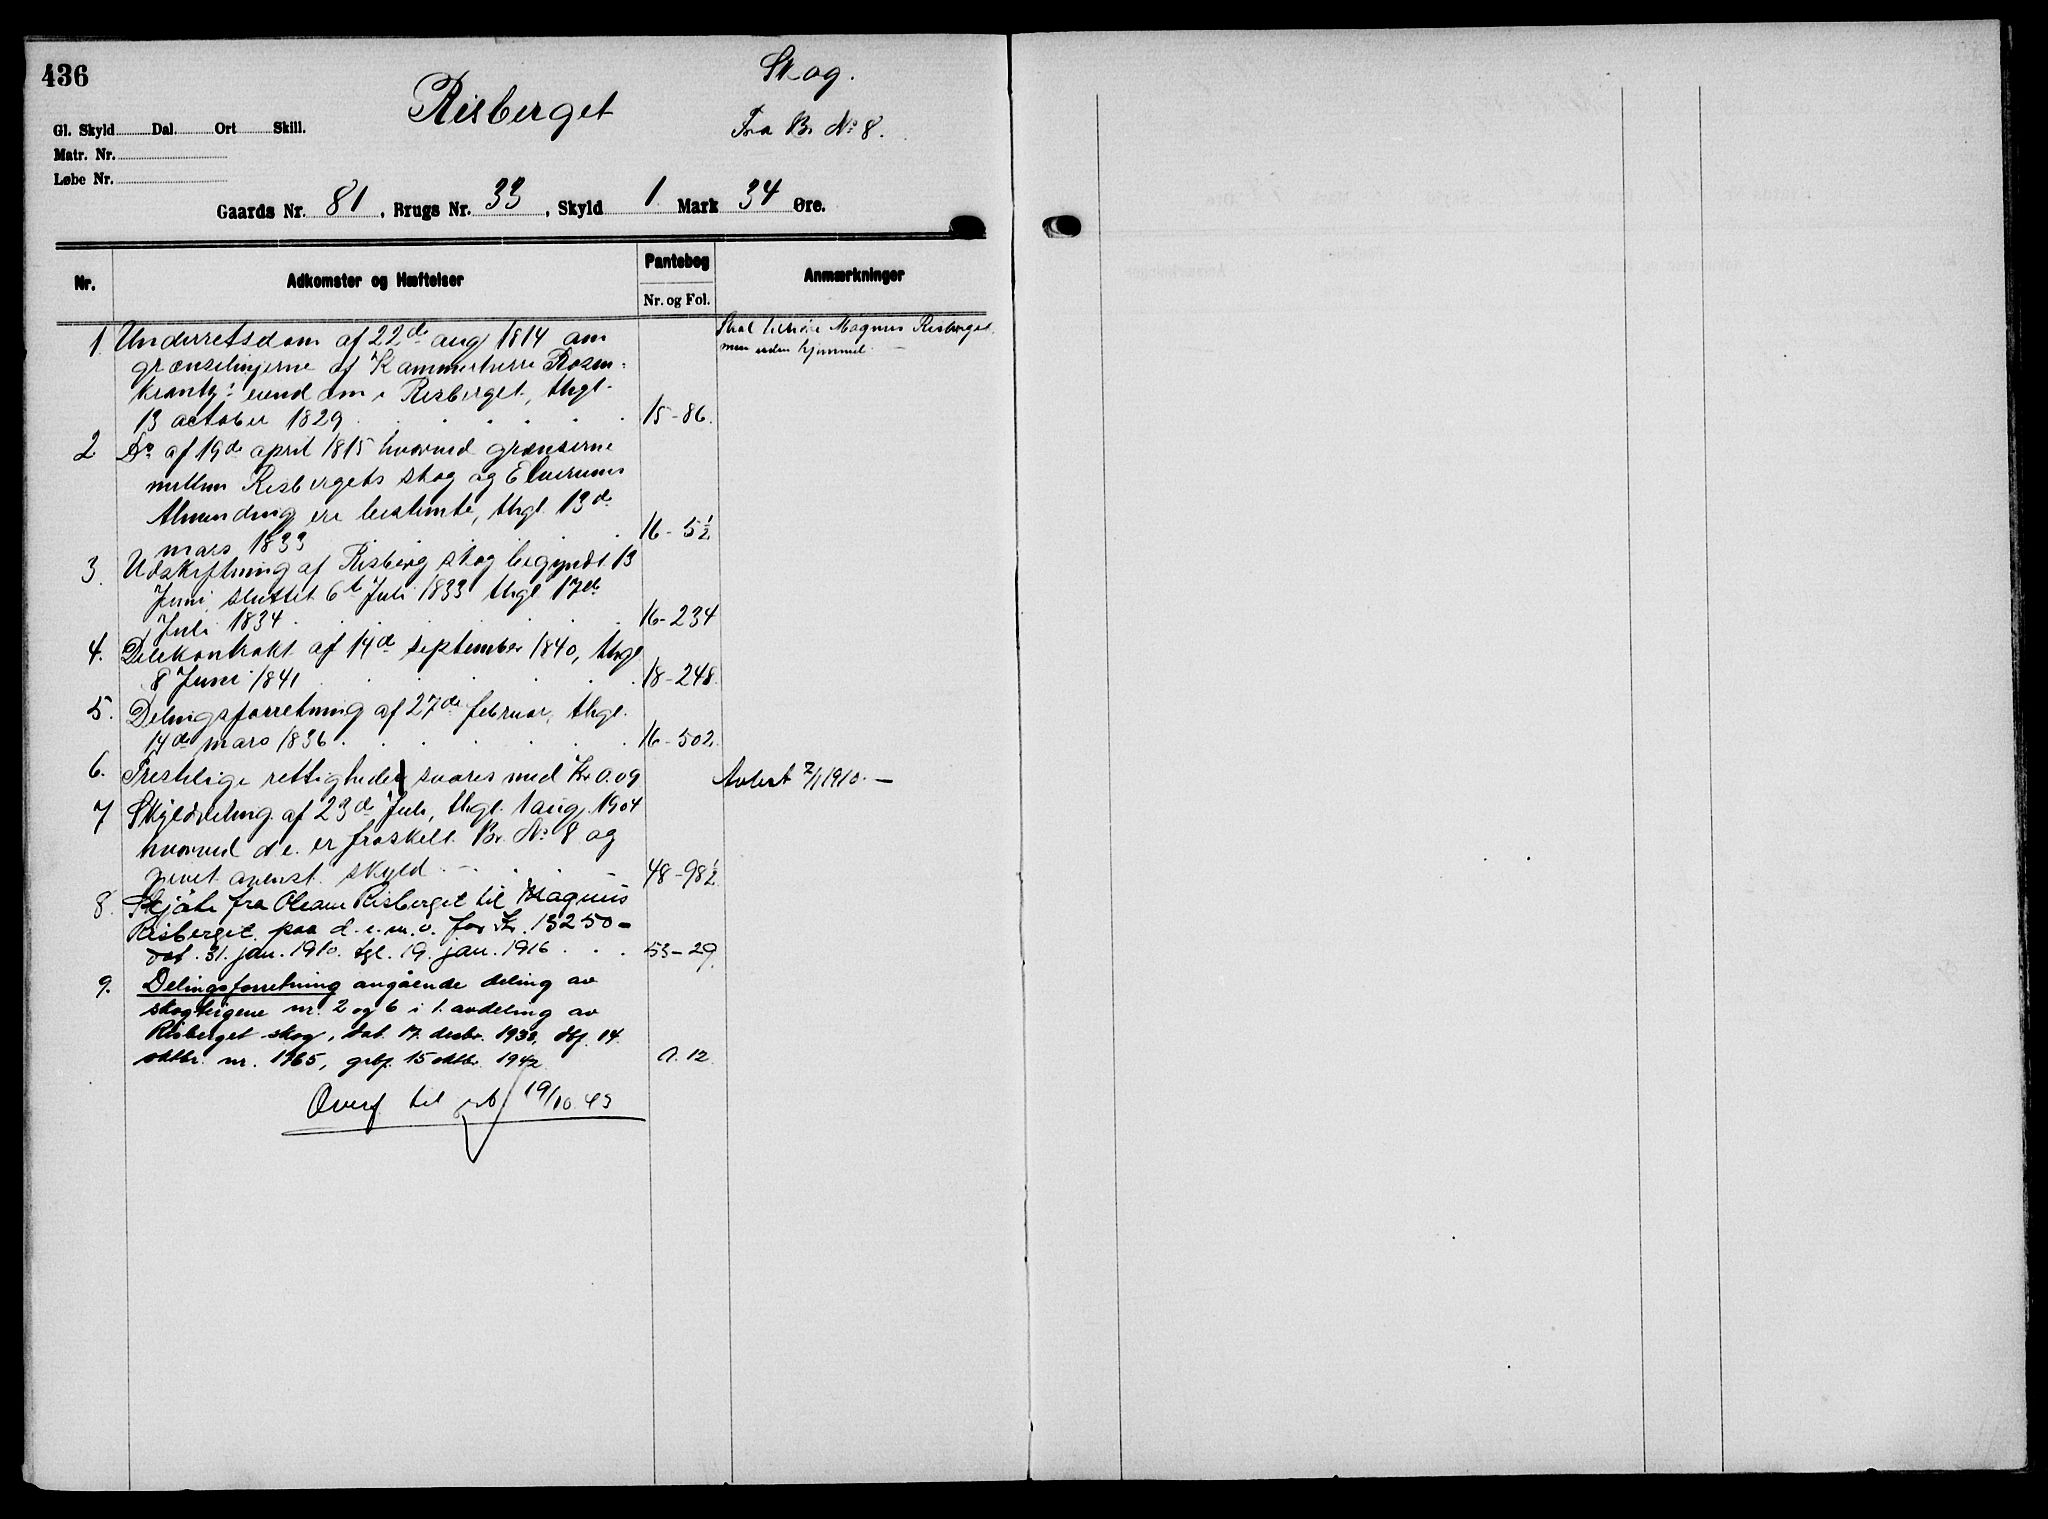 436
Risberget
Skog.
Fra Br. No 8.
Gl. Skyld Dal. Ort Skill.
Matr. Nr.
Løbe Nr.
Gaards Nr. 81, Brugs Nr. 33, Skyld 1 Mark 34 Øre.
Nr. Adkomster og Hæftelser Pantebog Nr. og Fol. Anmærkninger
1. Underretsdom af 22de aug 1814 om
Skal tilhøre Magnus Risberget
men uden hjemmel. —
grænselinjerne af Kammerherre Rosen-
krantz' eiendom i Risberget, thgl.
13 october 1829 15-86.
2. Do af 19de april 1815 hvorved grænserne
mellem Risbergets skog og Elverums
Almending ere bestemte, thgl. 13de
mars 1833 16-5½
3. Udskiftning af Risberg skog begyndt 13
Juni, sluttet 6te Juli 1833 thgl 17de
Juli 1834 16-234
4. Delekontrakt af 14de september 1840, thgl
8 Juni 1841 18-248.
5. Delingsforretning af 27de februar, thgl.
14de mars 1836 16-502.
6. Trestelige rettigheder svares med Kr 0.09 Avløst 7/1 1910. —
7 Skylddeling af 23de Juli, thgl. 1 aug. 1904
hvorved d. e. er fraskelt Br. No 8 og
givet ovenst. skyld 48-98½
8. Skjøte fra Oleane Risberget til Magnus
Risberget paa d. e. m. v. for Kr. 13250 -
dat. 31. jan. 1910. tgl. 19. jan. 1916 53-29.
9. Delingsforretning angående deling av
skogteigene nr. 2 og 6 i 1. avdeling av
Risberget skog, dat. 17. desbr. 1938, dbf. 14.
oktbr. nr. 1965, grbf. 15 oktbr. 1942 12.
Overf. til 19/10.43